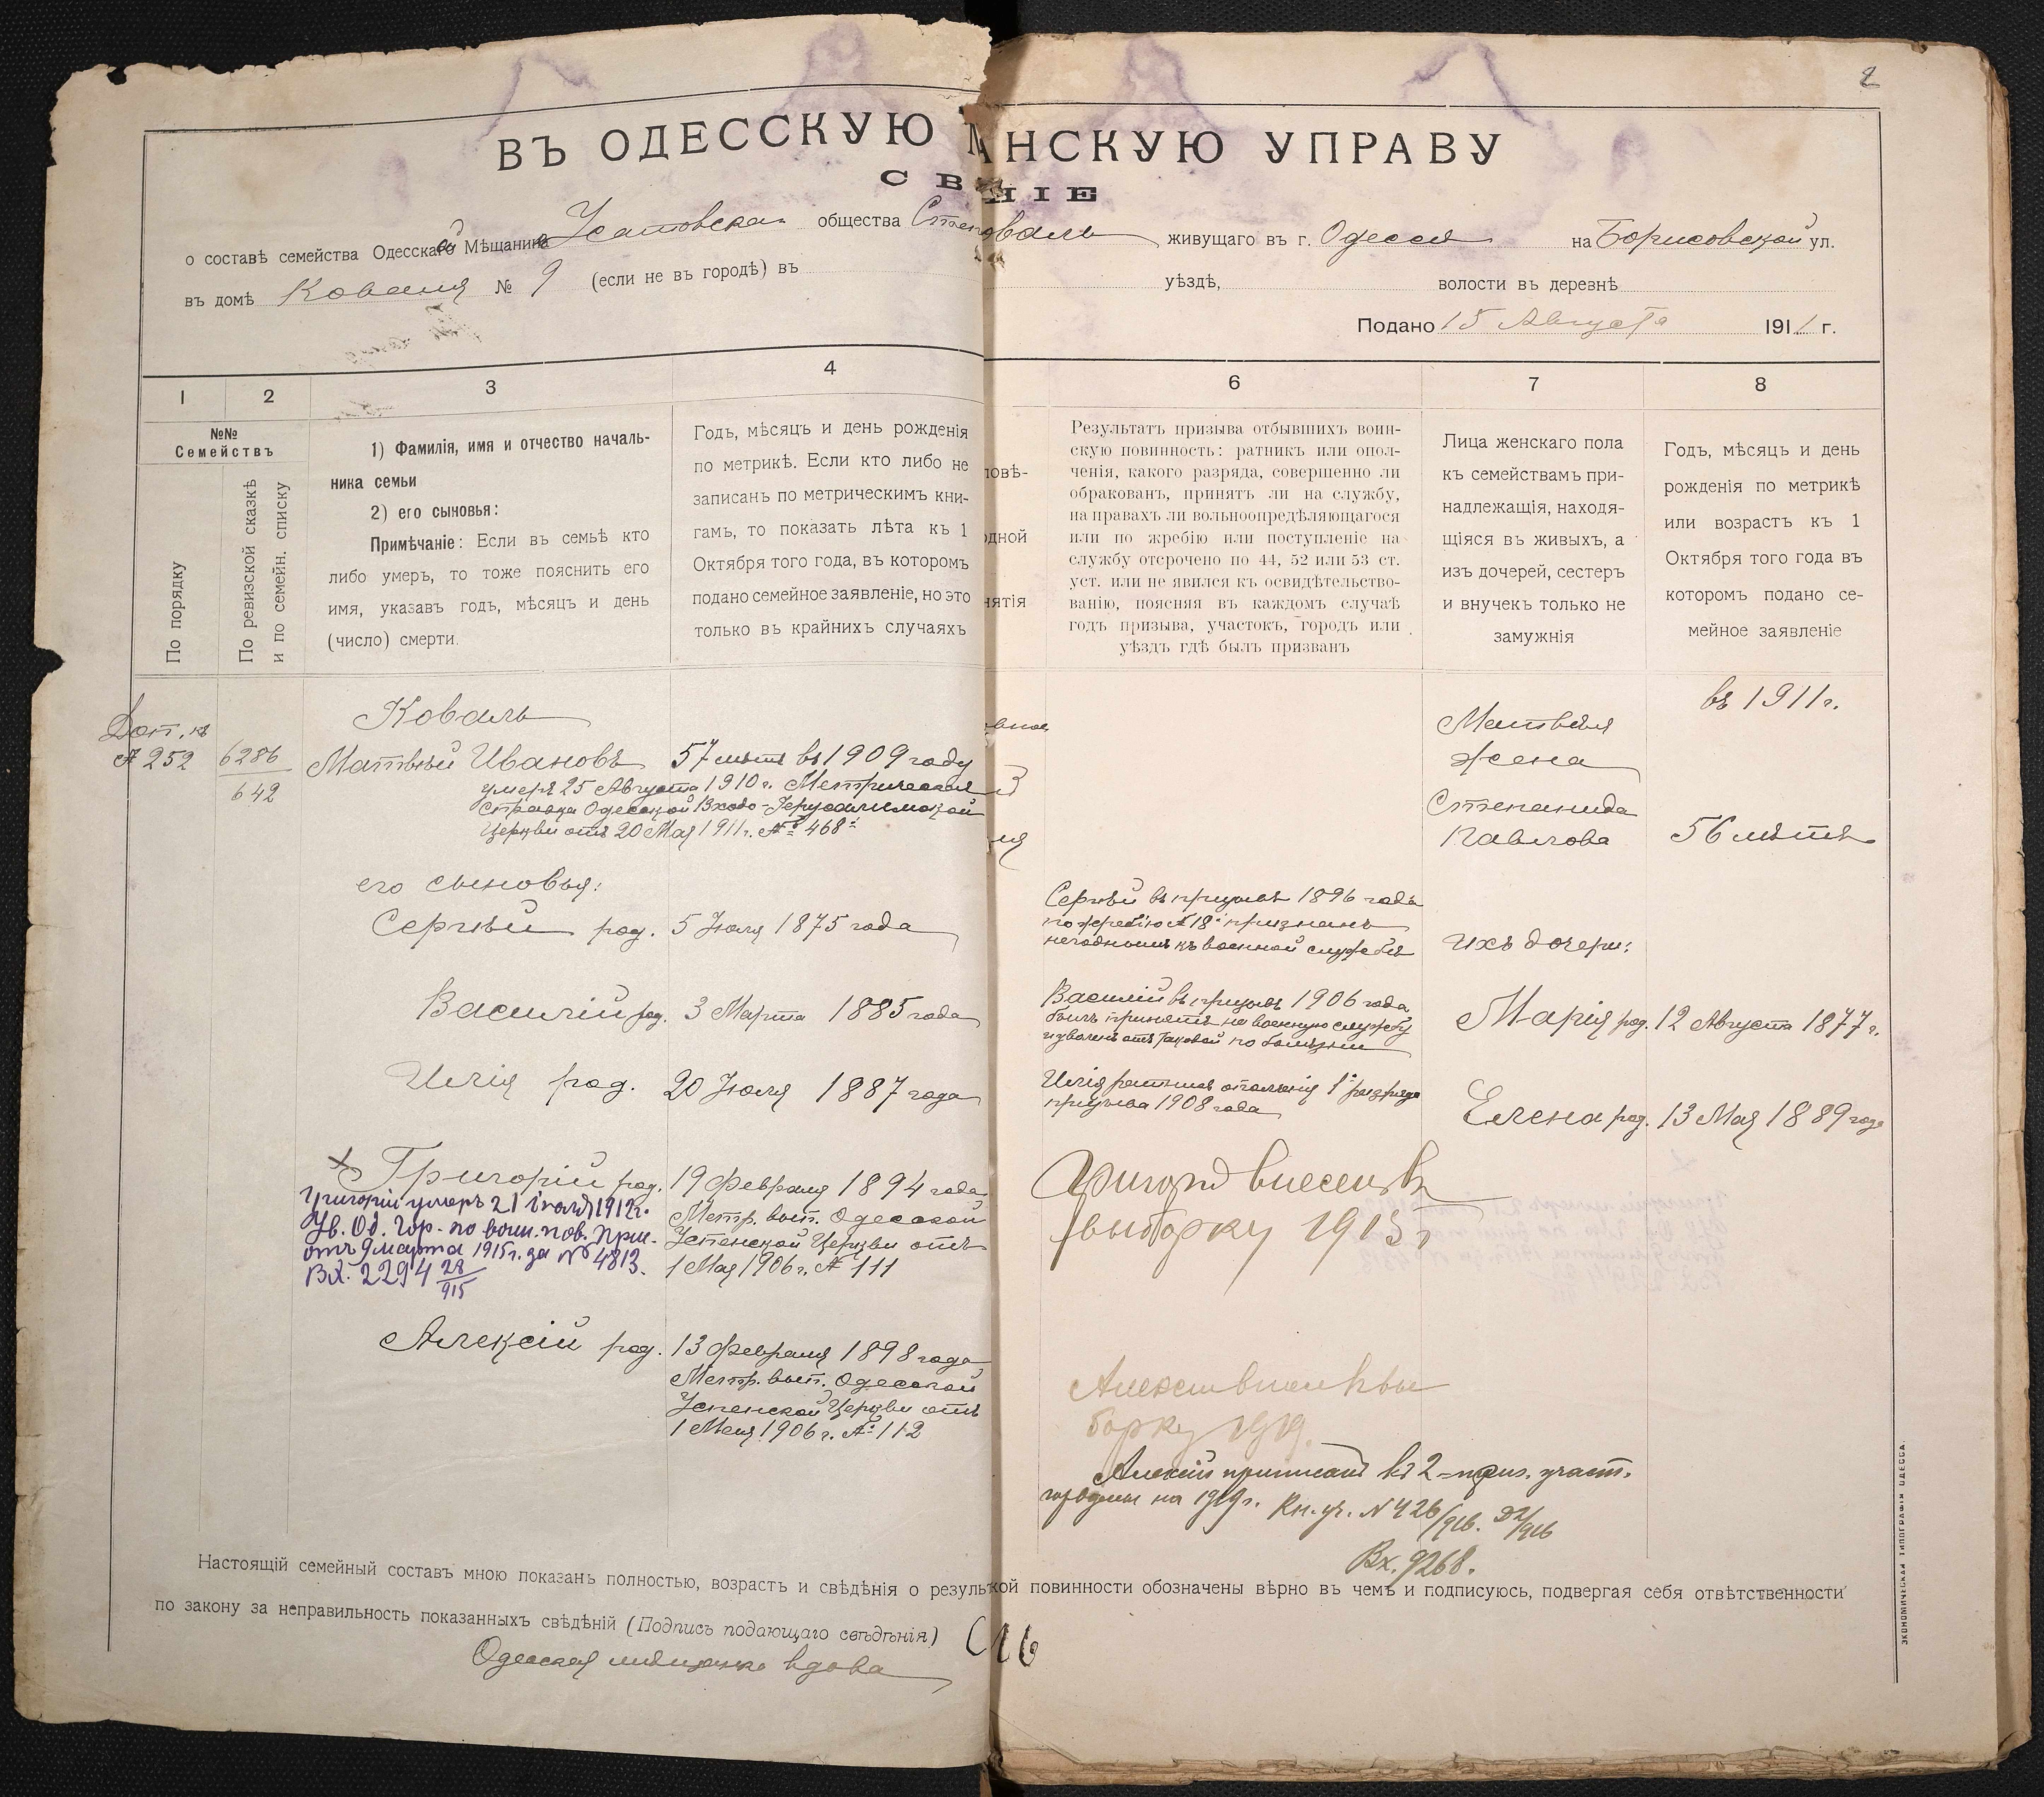 2
ВЪ ОДЕССКУЮ НСКУЮ УПРАВУ
СВ НІЕ
о составѣ семейства Одесскаго Мѣщанина Усатовскаго общества Коваль живущаго въ г. Одессѣ на Борисовской ул.
въ домѣ Коваля № 9 (если не въ городѣ) въ уѣздѣ, волости въ деревнѣ
Подано 15 Августа 1911 г.
1 2 3 4 6 7 8
№№
Семействъ
По порядку
По ревизской сказкѣ
и по семейн. списку
1) Фамилія, имя и отчество началь-
ника семьи
2) его сыновья:
Примѣчаніе: Если въ семьѣ кто
либо умеръ, то тоже пояснить его
имя, указавъ годъ, мѣсяцъ и день
(число) смерти.
Годъ, мѣсяцъ и день рожденія
по метрикѣ. Если кто либо не
записанъ по метрическимъ кни-
гамъ, то показать лѣта къ 1
Октября того года, въ которомъ
подано семейное заявленіе, но это
только въ крайнихъ случаяхъ
повѣ-
одной
нятія
Результатъ призыва отбывшихъ воин-
скую повинность: ратникъ или опол-
ченія, какого разряда, совершенно ли
обракованъ, принятъ ли на службу,
на правахъ ли вольноопредѣляющагося
или по жребію или поступленіе на
службу отсрочено по 44, 52 или 53 ст.
уст. или не явился къ освидѣтельство-
ванію, поясняя въ каждомъ случаѣ
годъ призыва, участокъ, городъ или
уѣздъ гдѣ былъ призванъ
Лица женскаго пола
къ семействамъ при-
надлежащія, находя-
щіяся въ живыхъ, а
изъ дочерей, сестеръ
и внучекъ только не
замужнія
Годъ, мѣсяцъ и день
рожденія по метрикѣ
или возрастъ къ 1
Октября того года въ
которомъ подано се-
мейное заявленіе
Доп. къ
№ 252
6286
642
Коваль
Матвѣй Ивановъ 57 лѣтъ въ 1909 году
умеръ 25 Августа 1910 г. Метрическая
справка Одесской Входо-Іерусалимской
Церкви отъ 20 Мая 1911 г. № 468
въ 1911 г.
Матвѣя
жена
Степанида
Павлова 56 лѣтъ
его сыновья:
Сергѣй род. 5 Іюля 1875 года
Сергѣй въ призывѣ 1896 года
по жребію № 18 признанъ
негоднымъ къ военной службѣ
ихъ дочери:
Василій род. 3 Марта 1885 года
Василій въ призывѣ 1906 года
былъ принятъ на военную службу
и уволенъ отъ таковой по болѣзни
Марія род. 12 Августа 1877 г.
Илія род. 20 Іюля 1887 года
Илія ратникъ ополченія 1 разряда
призыва 1908 года
Елена род. 13 Мая 1889 года
Григорій род. 19 Февраля 1894 года
Метр. вып. Одесской
Успенской Церкви отъ
1 Мая 1906 г. № 111
Григорій умеръ 21 іюля 1912 г.
Ув. Од. Гор. по воин. пов. Прис.
отъ 9 марта 1915 г. за № 4813.
Вх. 2294 28/915
Григорій внесенъ въ
выборку 1915 г
Алексій род. 13 Февраля 1898 года
Метр. вып. Одесской
Успенской Церкви отъ
1 Мая 1906 г. № 112
Алексій внесенъ въ вы
борку 1919.
Алексій приписанъ къ 2 приз. участ.
на 1919 г. Кн. уч. N 426/916.
Вх. 9268.
Настоящій семейный составъ мною показанъ полностью, возрастъ и свѣдѣнія о резуль кой повинности обозначены вѣрно въ чемъ и подписуюсь, подвергая себя отвѣтственности
по закону за неправильность показанныхъ свѣдѣній (Подпись подающаго свѣдѣнія)
Одесская мѣщанка вдова
ЭКОНОМИЧЕСКАЯ ТИПОГРАФІЯ ОДЕССА.